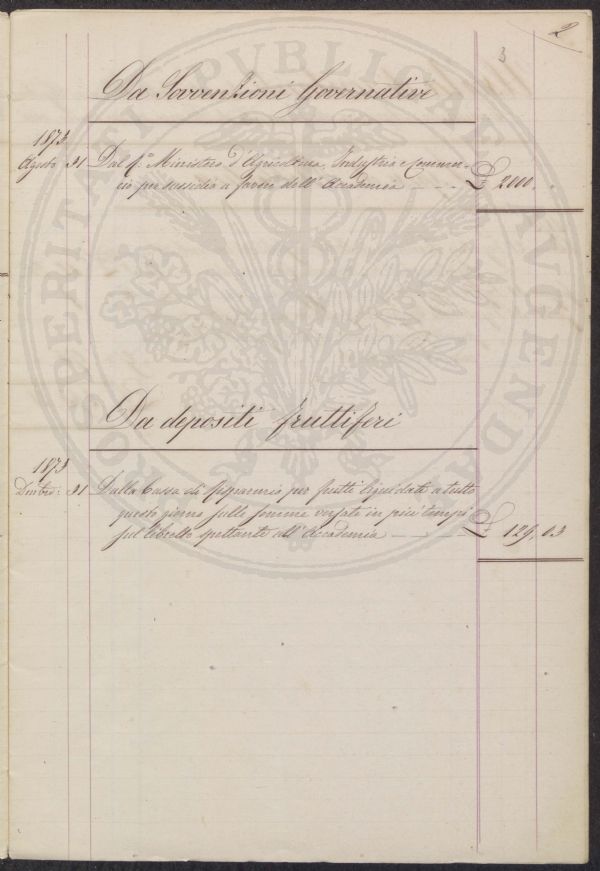 2
3
Da Sovvenzioni Governative
1873
Agosto 31 Dal R.° Ministero d'Agricoltura, Industria e Commer-
cio per sussidio a favore dell'Accademia — £ 2000.
Da depositi fruttiferi
1873
Dicembre: 31 Dalla Cassa di Risparmio per frutti liquidati a tutto
questo giorno sulle somme versate in più tempi
sul libretto spettante all'Accademia — £ 129,03
PROSPERITATI PUBLICAE AUGENDAE